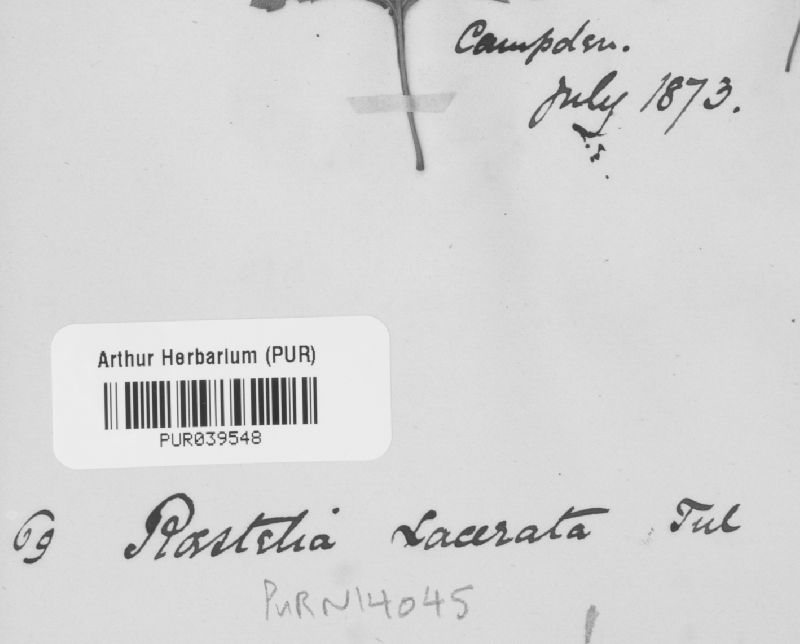 Campden.
July 1873.
Arthur Herbarium (PUR)
PUR039548
Rœstelia Lacerata Tul
PURN14045